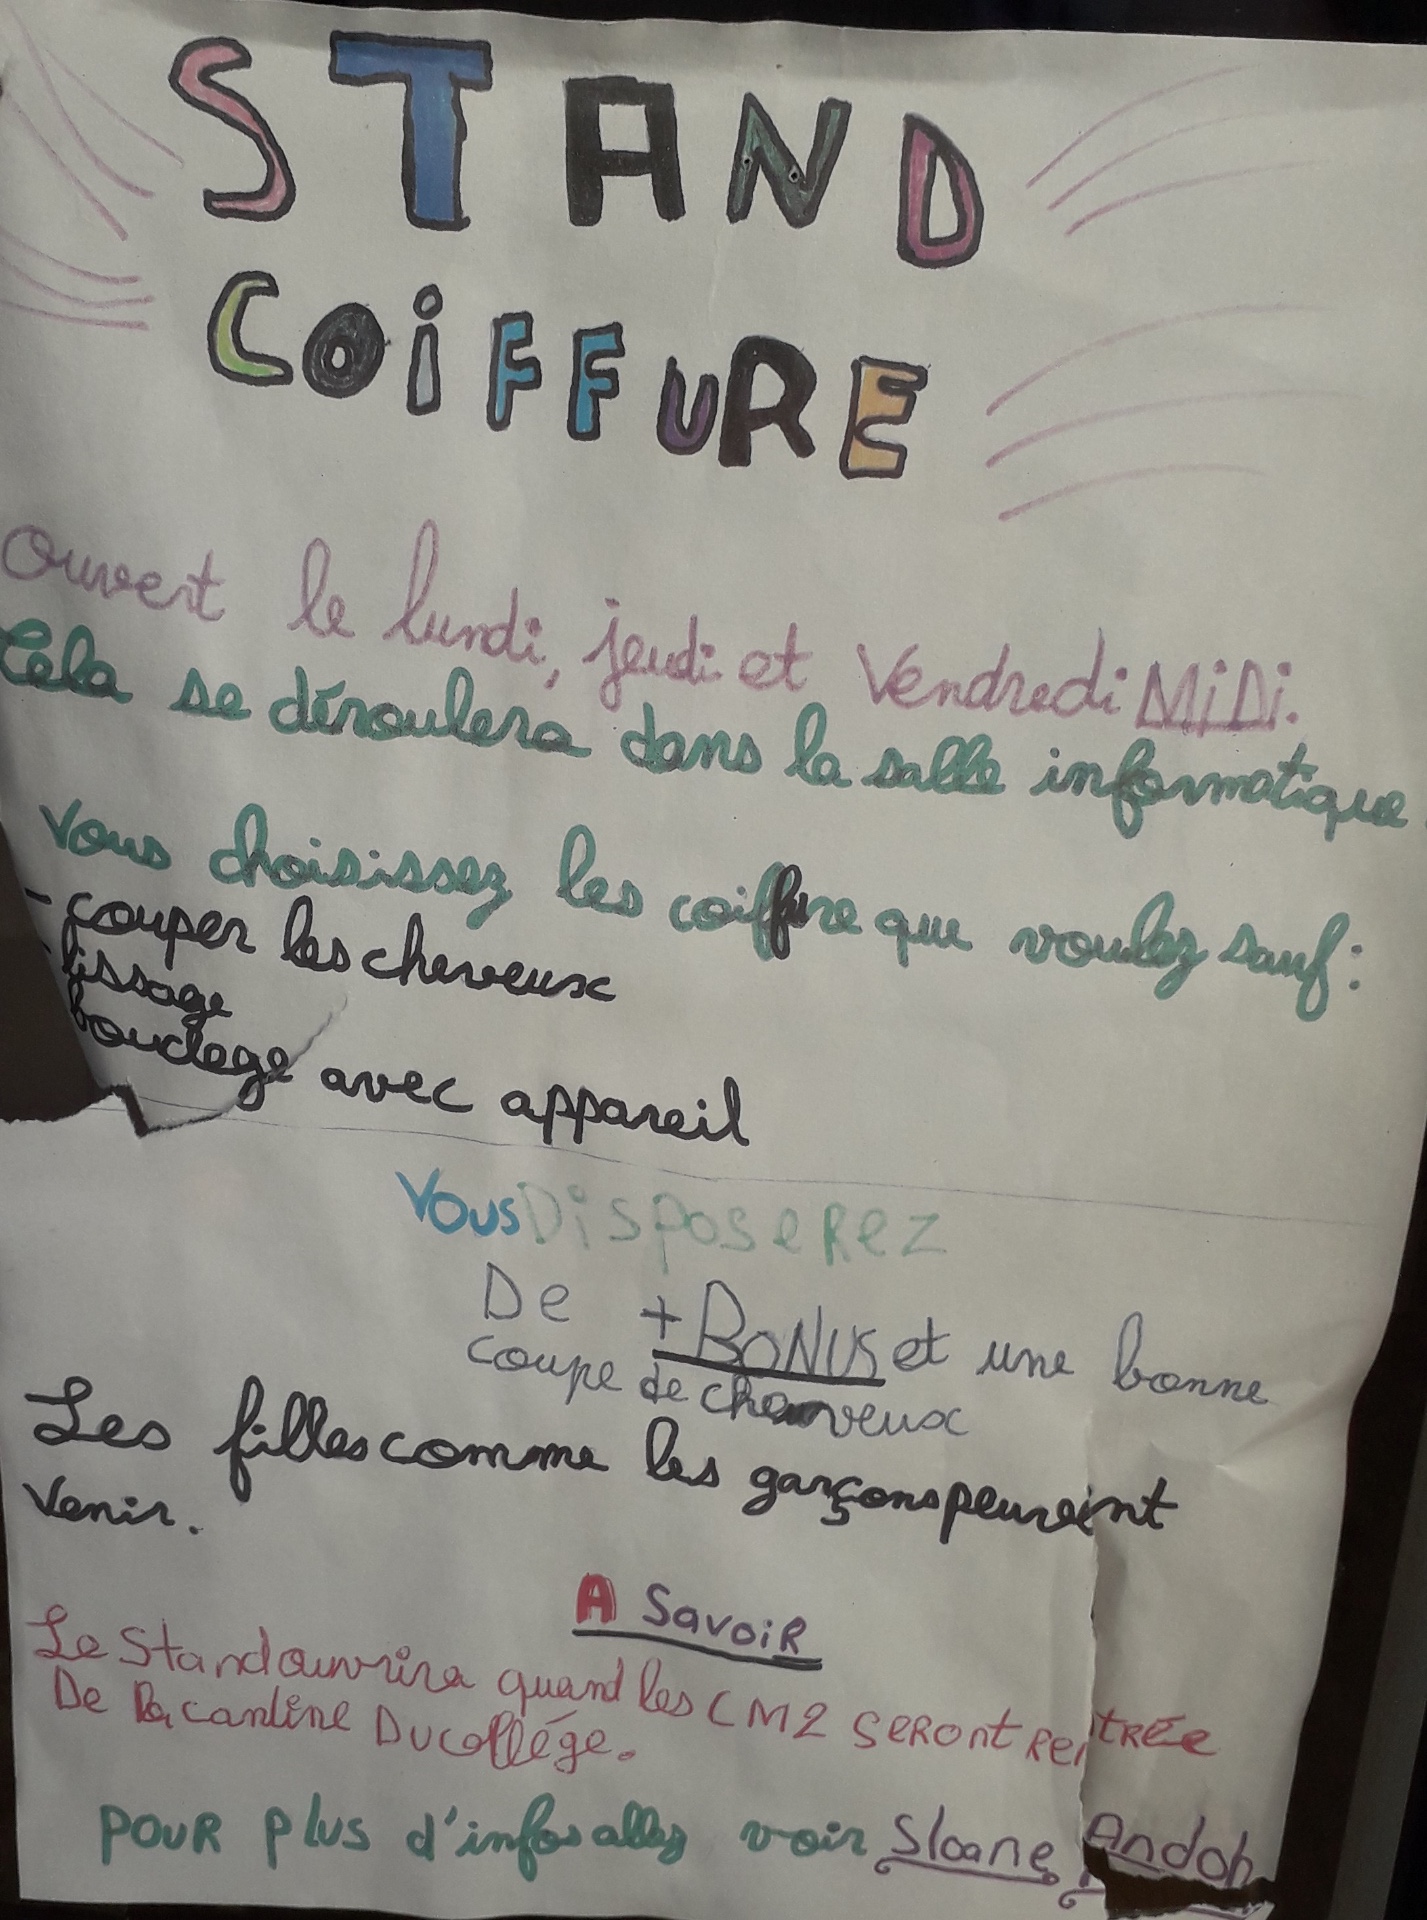 STAND
COiFFURE
Ouvert le lundi, jeudi et Vendredi MiDi.
Cela se déroulera dans la salle informatique
Vous choisissez les coiffure que voulez sauf:
- couper les cheveux
- lissage
bouclege avec appareil
Vous Disposerez
De + BONUS et une bonne
coupe de cheveux
Les filles comme les garçons peuveint
venir.
A Savoir
Le Stand ouvrira quand les CM2 SERont RentRée
De la cantine Du collége.
POUR plus d'infos allez voir Sloane Andoh